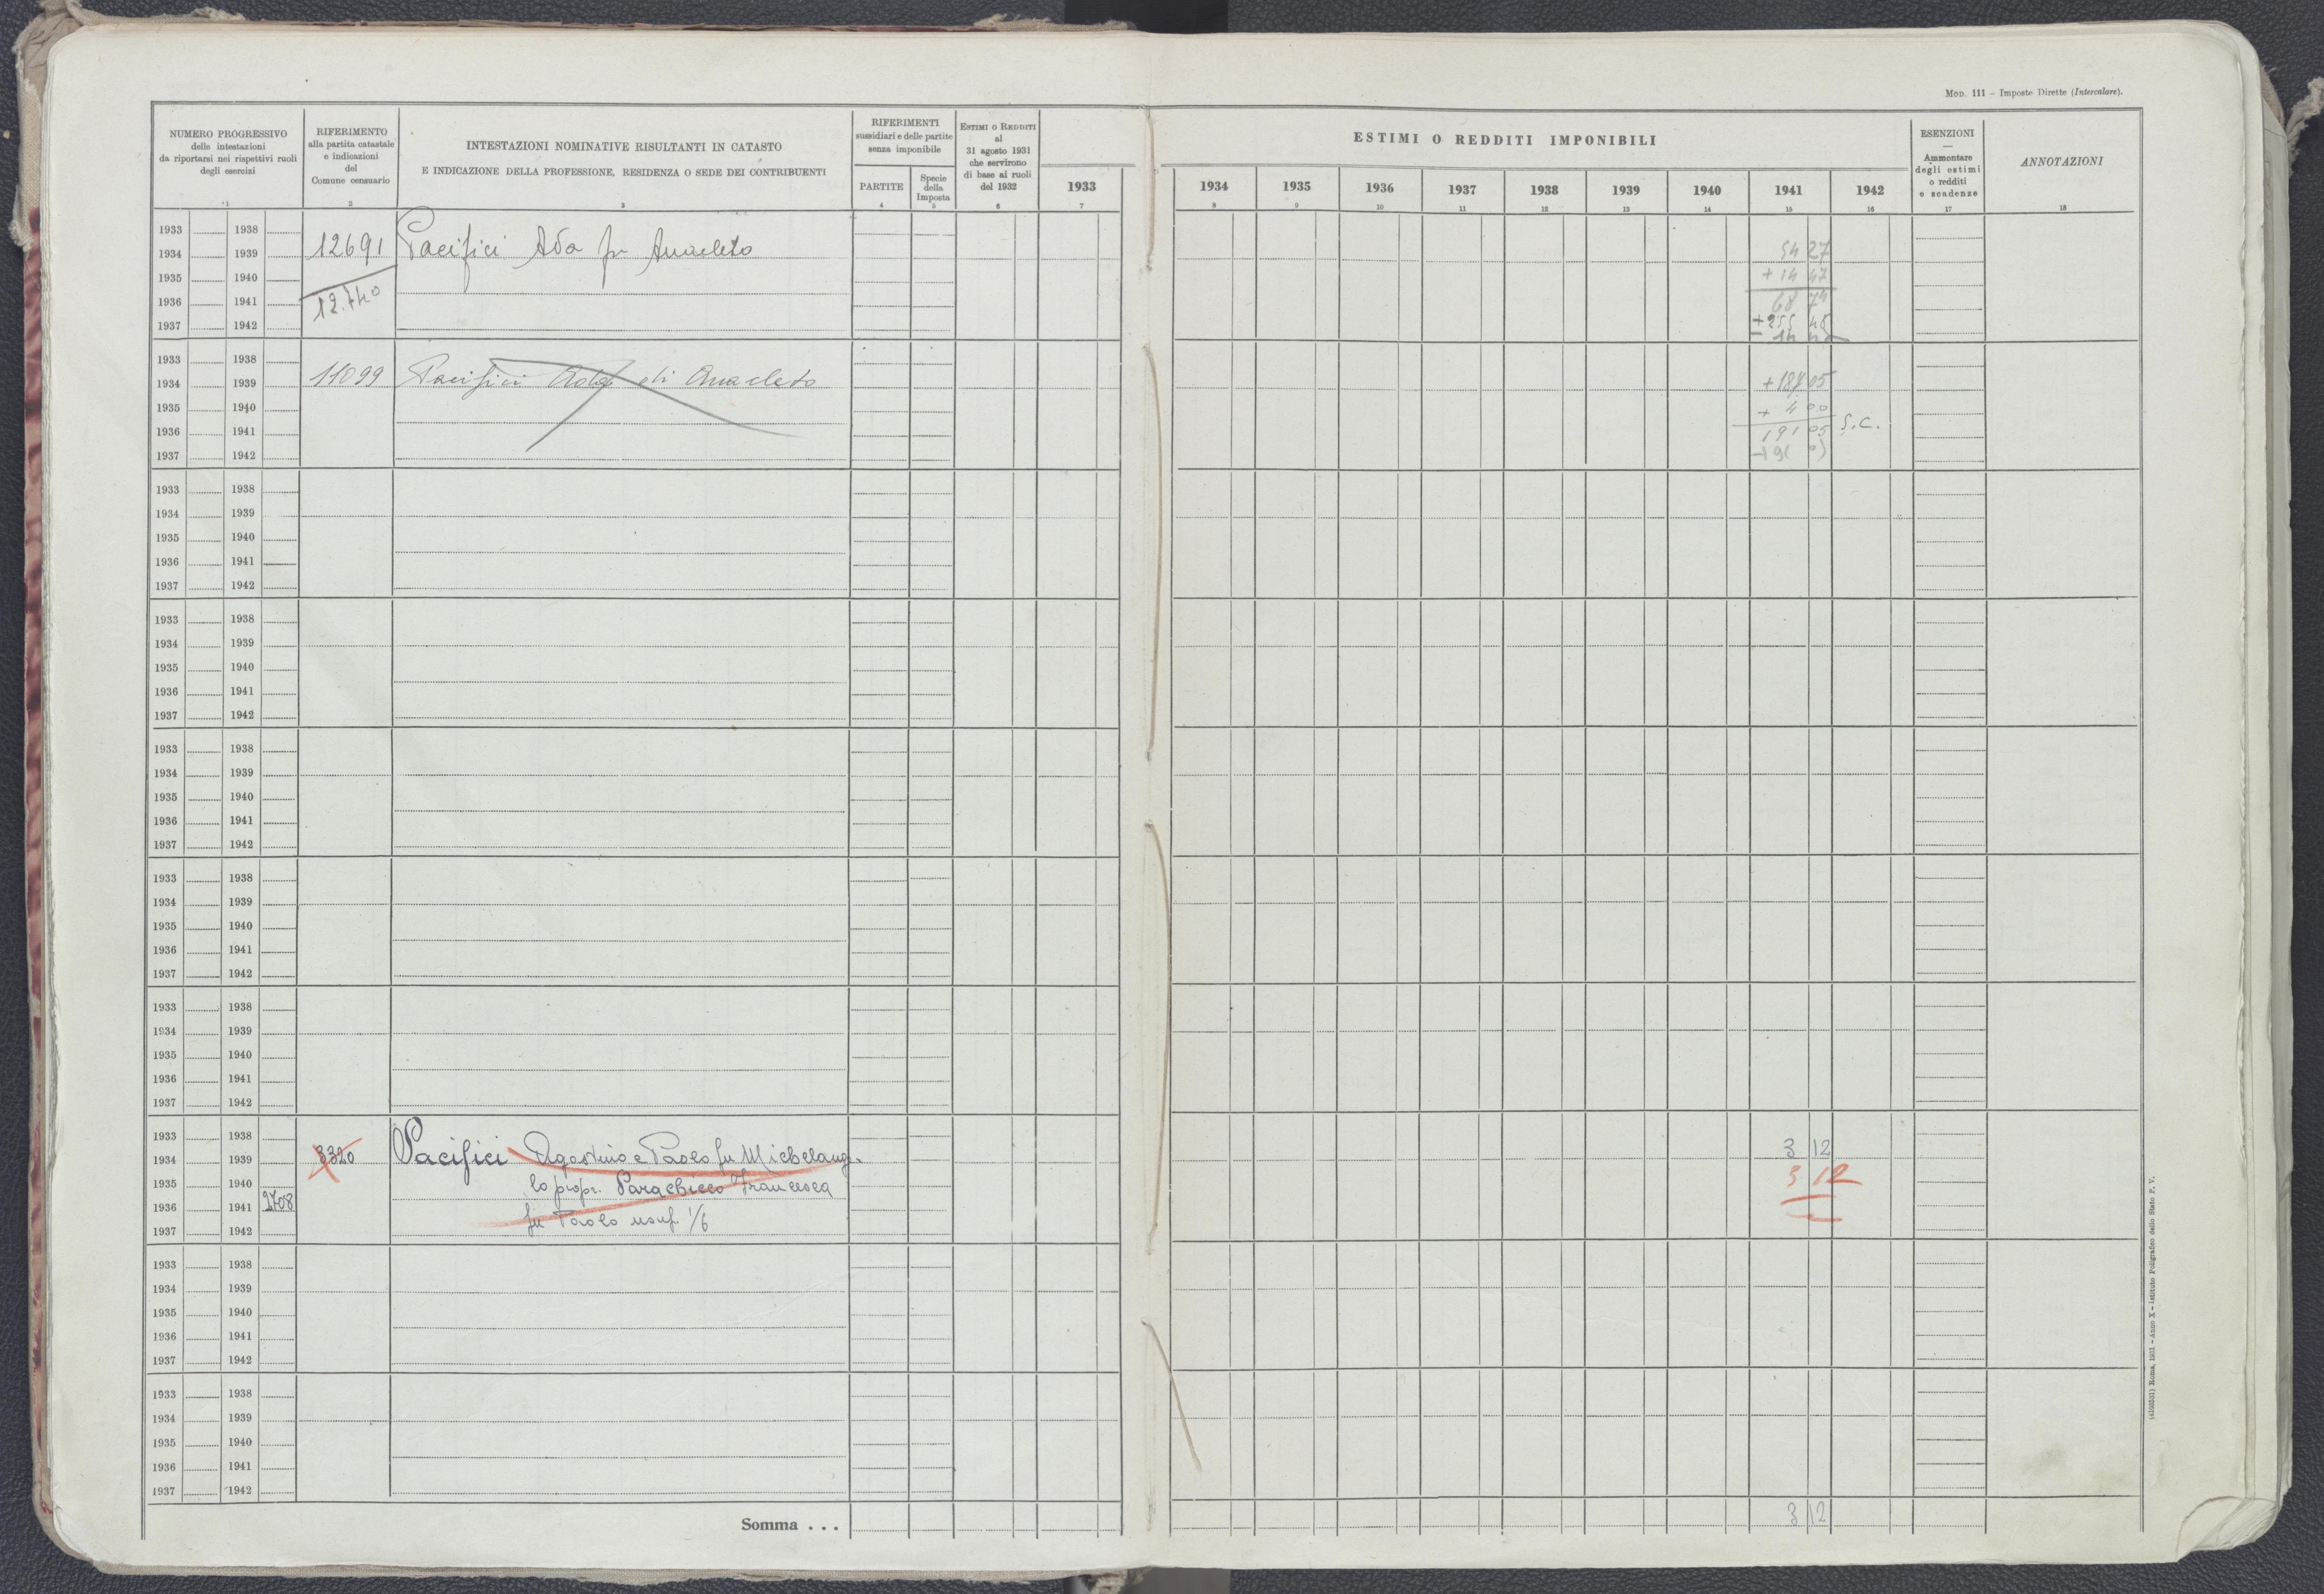 Mod. 111 - Imposte Dirette (Intercalare).
NUMERO PROGRESSIVO
delle intestazioni
da riportarsi nei rispettivi ruoli
degli esercizi
1
RIFERIMENTO
alla partita catastale
e indicazioni
del
Comune censuario
2
INTESTAZIONI NOMINATIVE RISULTANTI IN CATASTO
E INDICAZIONE DELLA PROFESSIONE, RESIDENZA O SEDE DEI CONTRIBUENTI
3
RIFERIMENTI
sussidiari e delle partite
senza imponibile
PARTITE
4
Specie
della
Imposta
5
ESTIMI O REDDITI
al
31 agosto 1931
che servirono
di base ai ruoli
del 1932
6
ESTIMI O REDDITI IMPONIBILI
1933 1934 1935 1936 1937 1938 1939 1940 1941 1942
7 8 9 10 11 12 13 14 15 16
ESENZIONI
Ammontare
degli estimi
o redditi
e scadenze
17
ANNOTAZIONI
18
1933 1938
1934 1939 12691 Pacifici Ada fu Anacleto 54 27
1935 1940 + 14 47
1936 1941 12.740 68 74
1937 1942 + 255 48
1933 1938
1934 1939 11099 Pacifici Ada di Anacleto + 187 05
1935 1940 + 4 00
1936 1941 191 05 S.C.
1937 1942
1933 1938
1934 1939
1935 1940
1936 1941
1937 1942
1933 1938
1934 1939
1935 1940
1936 1941
1937 1942
1933 1938
1934 1939
1935 1940
1936 1941
1937 1942
1933 1938
1934 1939
1935 1940
1936 1941
1937 1942
1933 1938
1934 1939
1935 1940
1936 1941
1937 1942
1933 1938 3 12
1934 1939 3320 Pacifici Agostino e Paolo fu Michelang.
1935 1940 lo propr. Parachicco Francesca 3 12
1936 1941 2708
1937 1942 fu Paolo usuf. 1/6
1933 1938
1934 1939
1935 1940
1936 1941
1937 1942
1933 1938
1934 1939
1935 1940
1936 1941
1937 1942
Somma . . . 3 12
(4103351) Roma, 1931 - Anno X - Istituto Poligrafico dello Stato P. V.